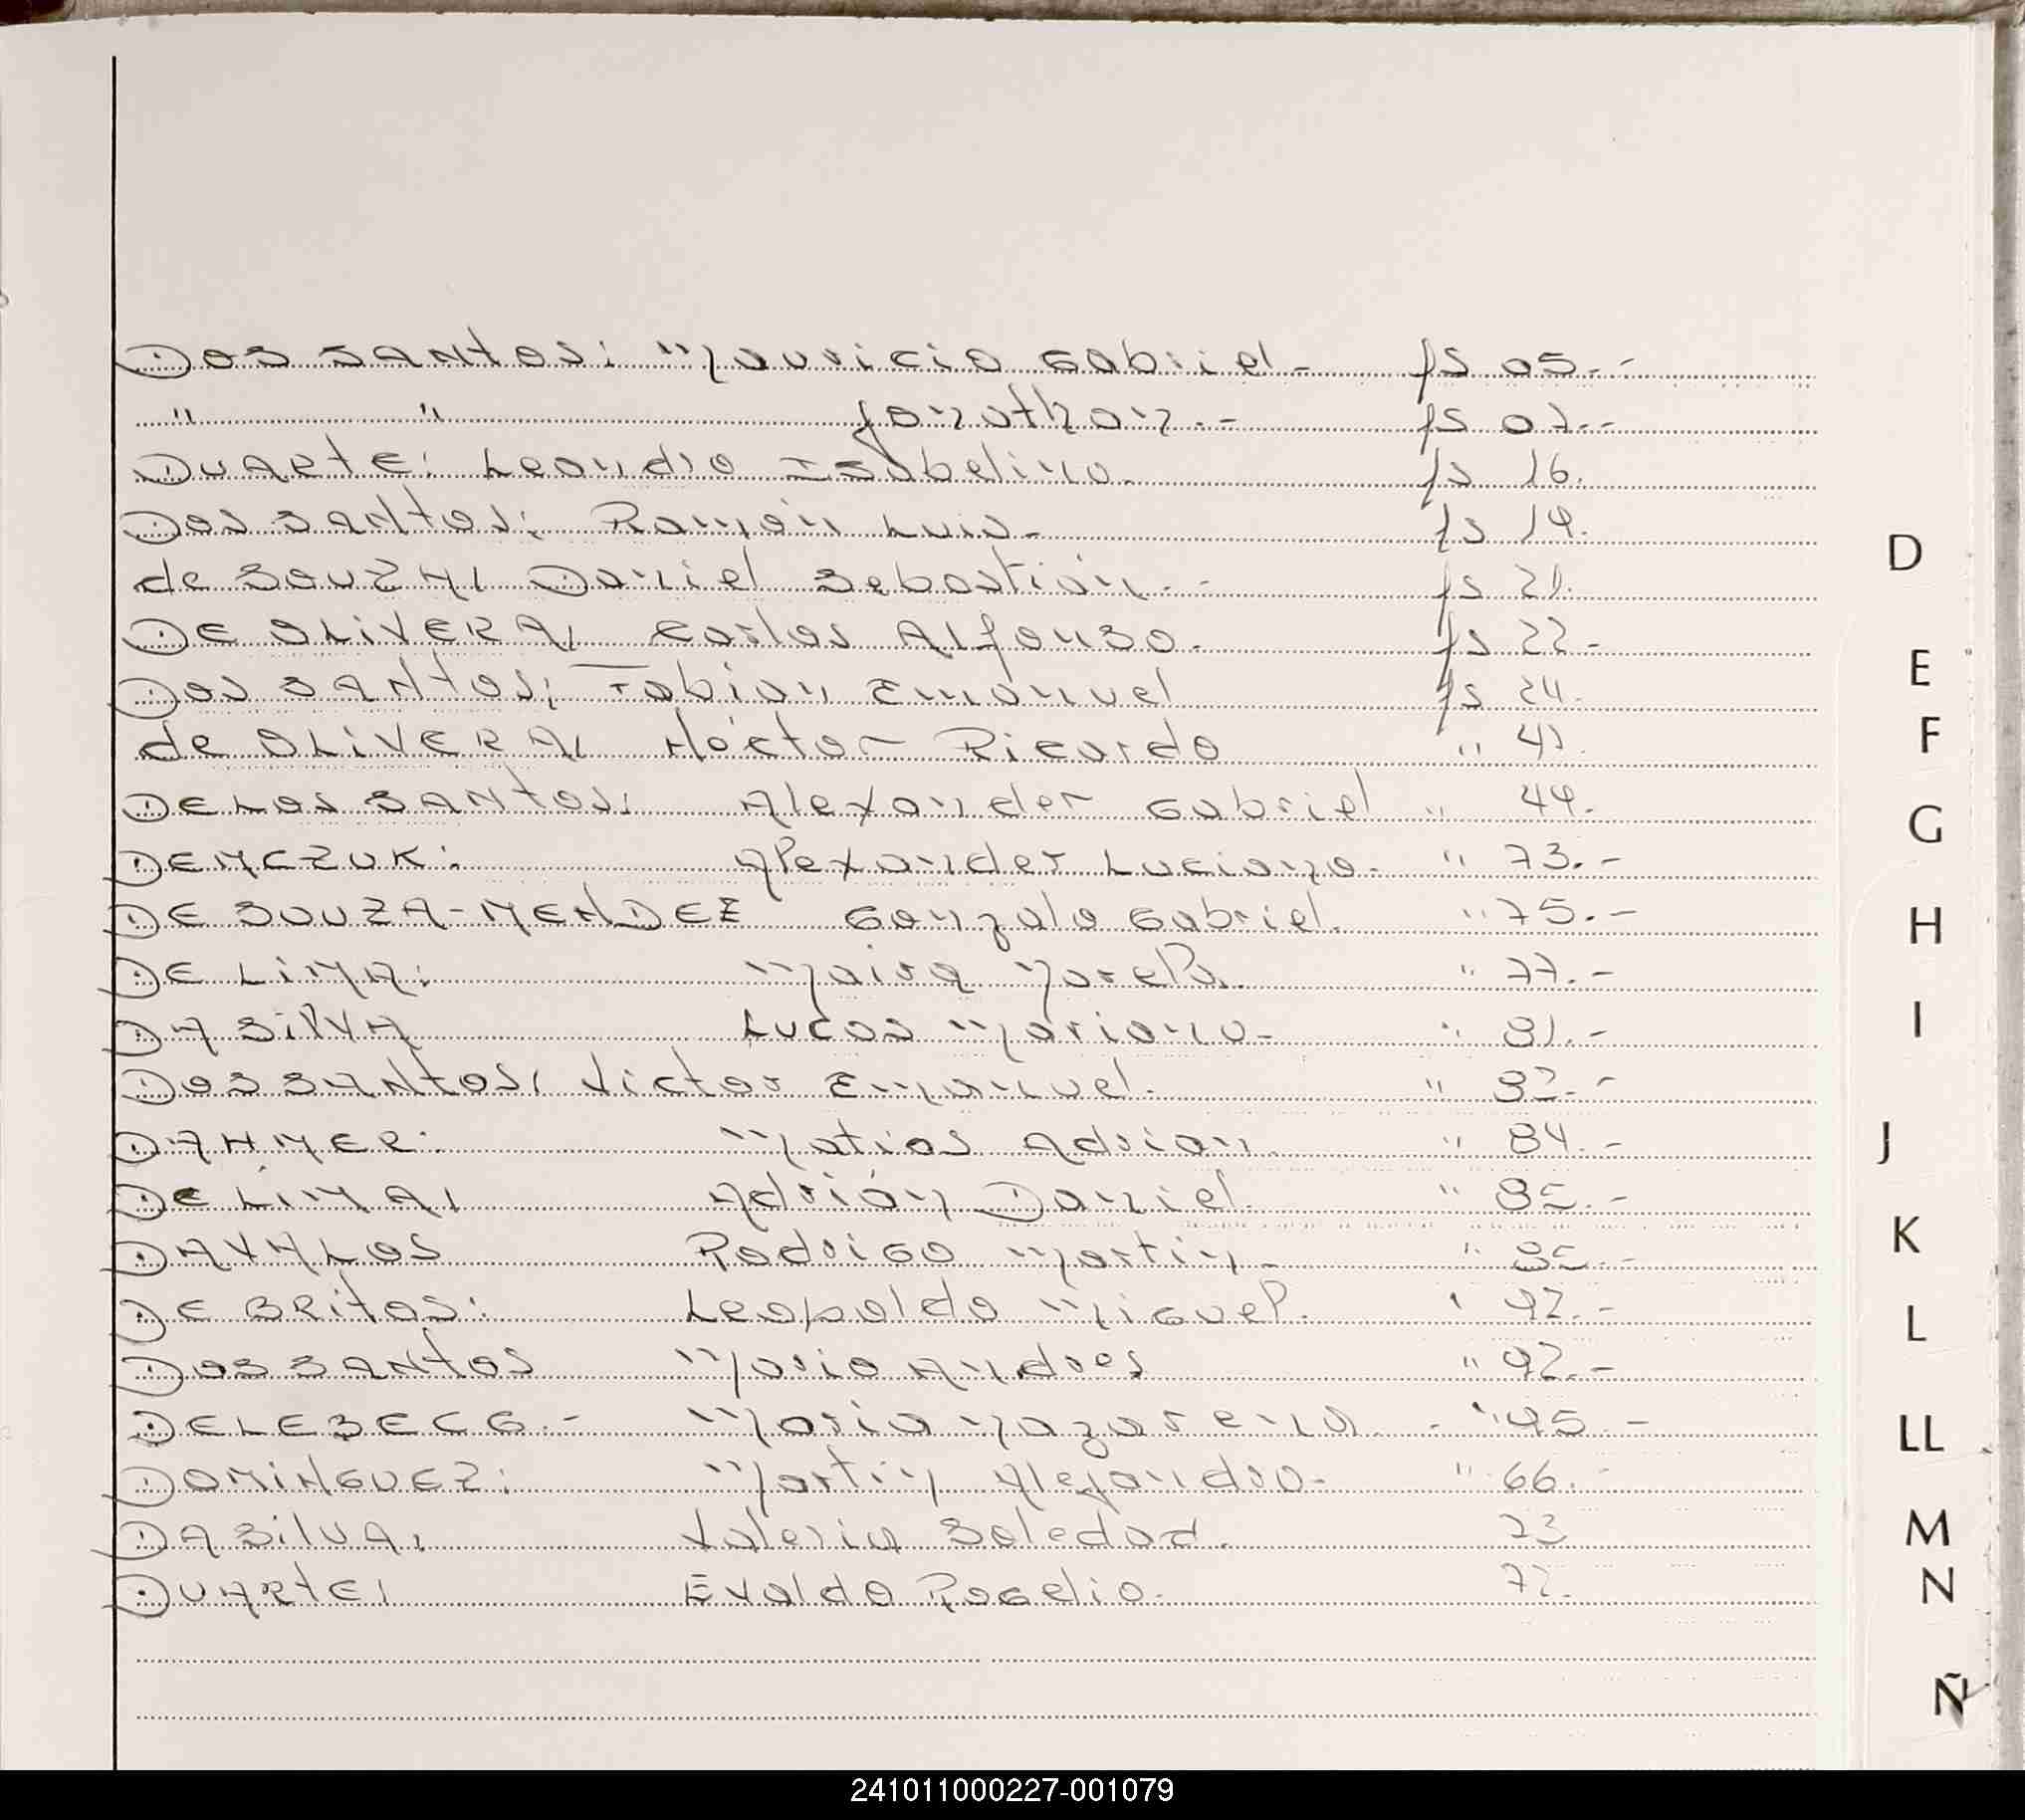 Dos Santos; Mauricio Gabriel.- fs 05.-
" " Jonathan.- fs 07.-
Duarte: Leandro Isabelino. fs 16.
Dos Santos; Ramón Luis.- fs 19.
de Souza, Daniel Sebastián.- fs 21.
De Olivera, Carlos Alfonso. fs 22.-
Dos Santos; Fabian Emanuel fs 24.
de Olivera, Héctor Ricardo " 41.
De Los Santos, Alexander Gabriel " 49.
Demczuk: Alexander Luciano. " 73.-
De Souza-Mendez Gonzalo Gabriel. " 75.-
De Lima: Maira Morela. " 77.-
Da Silva Lucas Mariano.- " 81.-
Dos Santos, Victor Emanuel. " 82.-
Dahmer: Matias Adrian. " 84.-
De Lima, Adrián Daniel. " 85.-
Davalos Rodrigo Martin.- " 85.-
De Britos: Leopoldo Miguel. " 92.-
Dos Santos Mario Andres " 92.-
Delebecg.- Maria Nazarena.- " 95.-
Dominguez: Martin Alejandro.- " 66.-
Da Silva, Valeria Soledad. 73
Duarte, Evaldo Rogelio. 72.
D
E
F
G
H
I
J
K
L
LL
M
N
Ñ
241011000227-001079